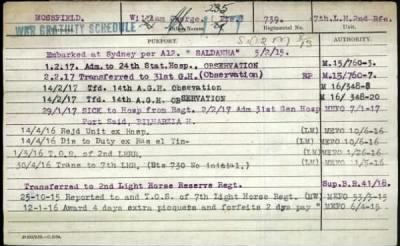 MOSSFIELD, William George. Pte 739. 7th.L.H.2nd Rfs.
WAR GRATUITY SCHEDULE
PURPORT
Embarked at Sydney per A12. " SALDANHA" 3/2/15.
1.2.17. Adm. to 24th Stat.Hosp., OBSERVATION M.15/760-3.
2.2.17 Transferred to 31st G.H.(Observation) M.15/760-7.
14/2/17 Tfd. 14th A.G.H. Obsevation M 16/348-8
14/2/17 Tfd. 14th A.G.H OBSERVATION M 16/ 348-20
29/1/17 SICK to Hosp from Regt. 2/2/17 Adm 31st Gen Hosp MEFO 7/1-17
Port Said, BILHARZIA H.
14/4/16 Rejd Unit ex Hosp. (LM) MEFO 10/6-16
14/4/16 Dis to Duty ex Ras el Tin- (LM) MEFO 10/6-16
1/3/16 T.O.S. of 2nd LHRR. (LM) MEFO 1/26-16
30/4/16 Trans to 7th LHR, (Sts 730 No inicial.) (LM) MEFO 12/6-16
Transferred to 2nd Light Horse Reserve Regt. Sup.B.R.41/18.
25-10-15 Reported to and T.O.S. of 7th Light Horse Regt. (NW) MEFO 53/3-15
12-1-16 Award 4 days extra picquets and forfeits 2 dys pay " MEFO 6/4-15